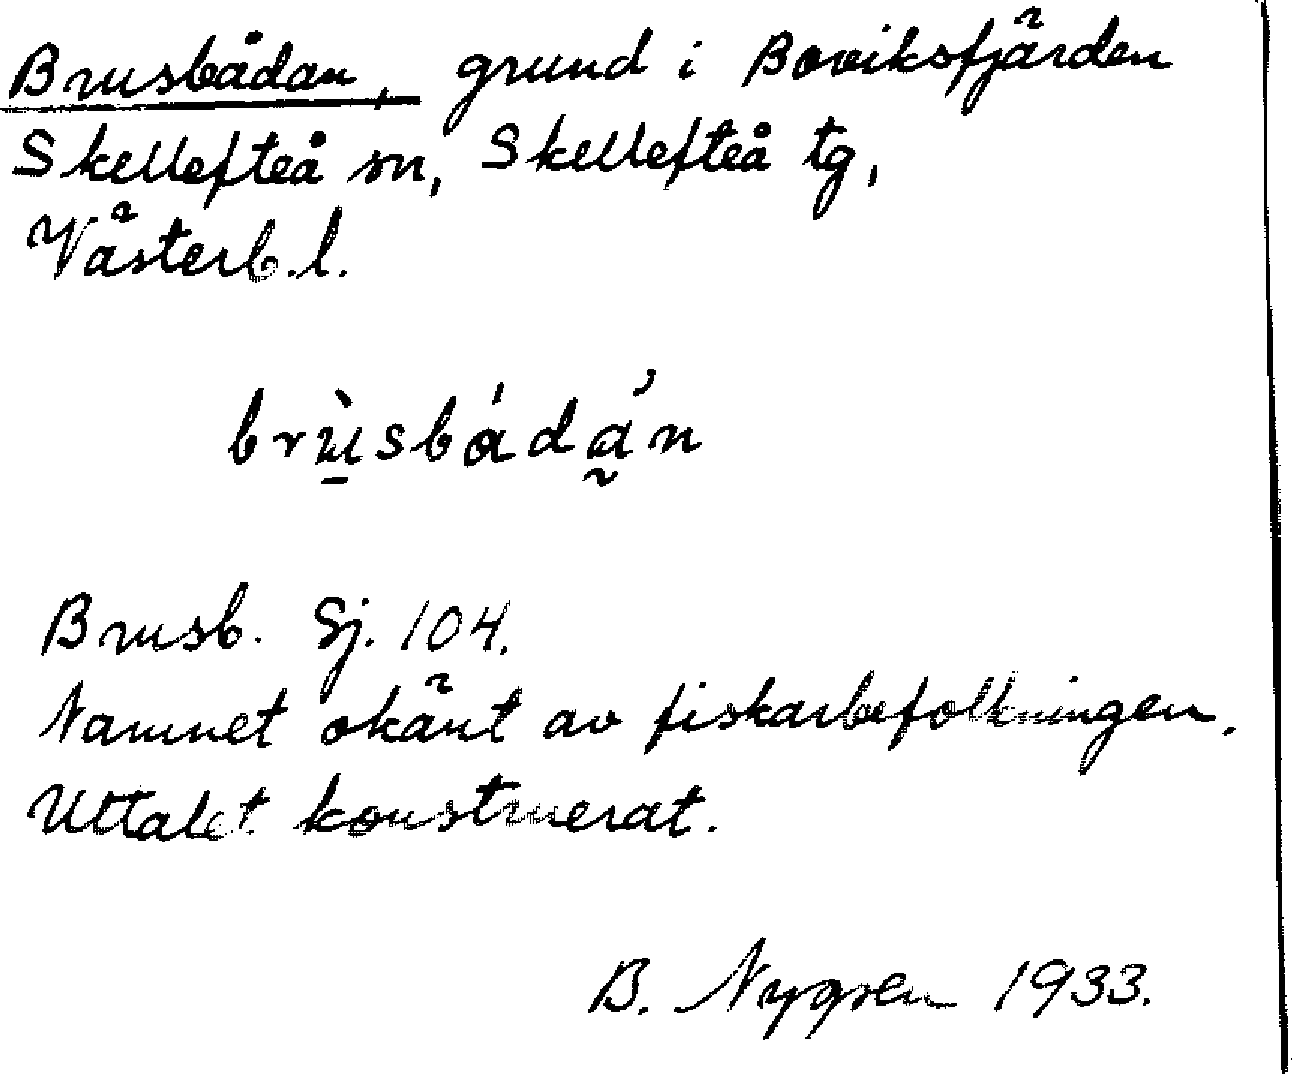 Brusbådan, grund i Boviksfjärden
Skellefteå sn, Skellefteå tg,
Västerb.l.
brùsbádán
Brusb. Sj. 104.
Namnet okänt av fiskarbefolkningen.
Uttalet konstruerat.
B. Nygren 1933.